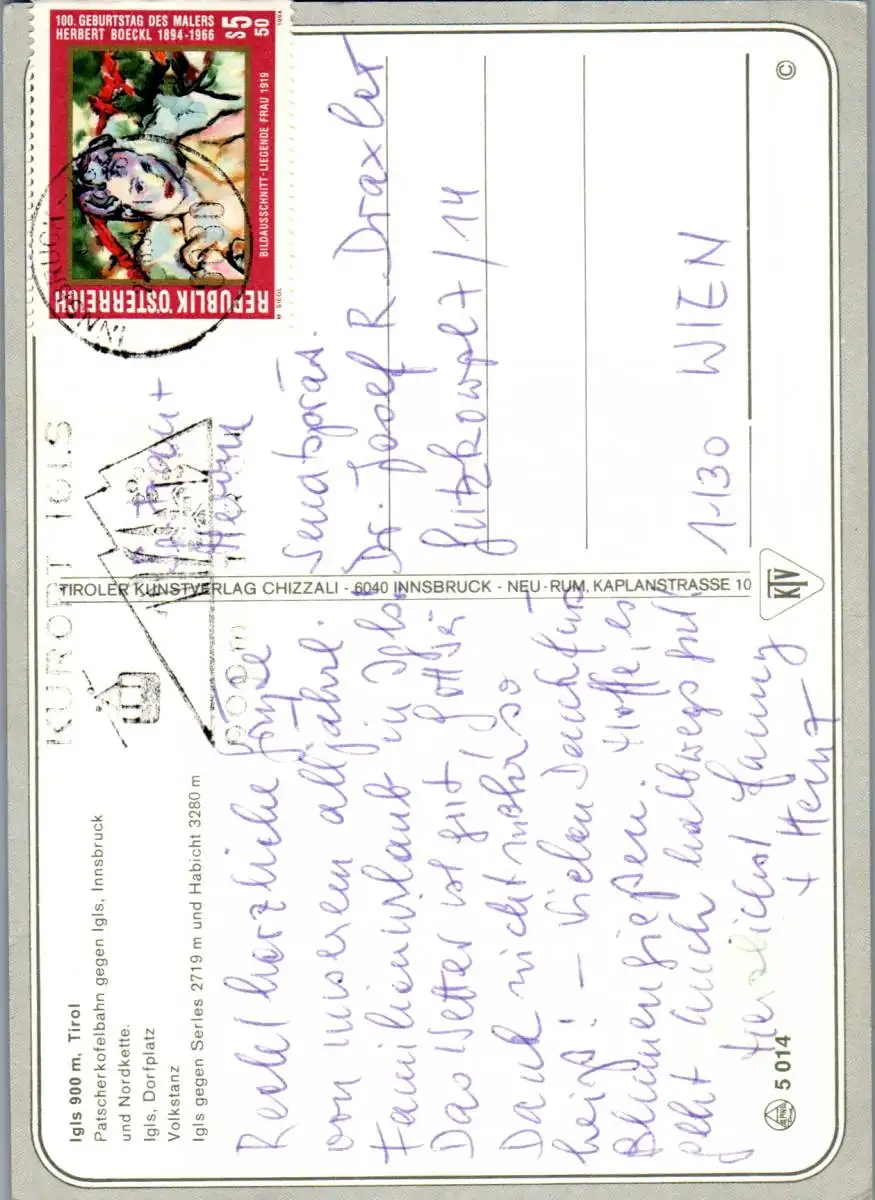 Igls 900 m, Tirol
Patscherkofelbahn gegen Igls, Innsbruck
und Nordkette.
Igls, Dorfplatz
Volkstanz
Igls gegen Serles 2719 m und Habicht 3280 m
KURORT IGLS
900 m
Recht herzliche Grüße
von unserem alljährl.
Familienurlaub in Igls.
Das Wetter ist gut Gott sei
Dank nicht mehr so
heiß! – Vielen Dank fürs
Blumengießen. Hoffe, es
geht Euch halbwegs gut.
Herzlichst Fanny
+ Heinz
TIROLER KUNSTVERLAG CHIZZALI - 6040 INNSBRUCK - NEU-RUM, KAPLANSTRASSE 10
KTV
5 014
100. GEBURTSTAG DES MALERS
HERBERT BOECKL 1894-1966
S 5
50
1994
BILDAUSSCHNITT-LIEGENDE FRAU 1919
REPUBLIK ÖSTERREICH
M. SIEGL
INNSBRUCK
Herrn
Senatspräs.
Dr. Josef R. Draxler
/14
1130 WIEN
©